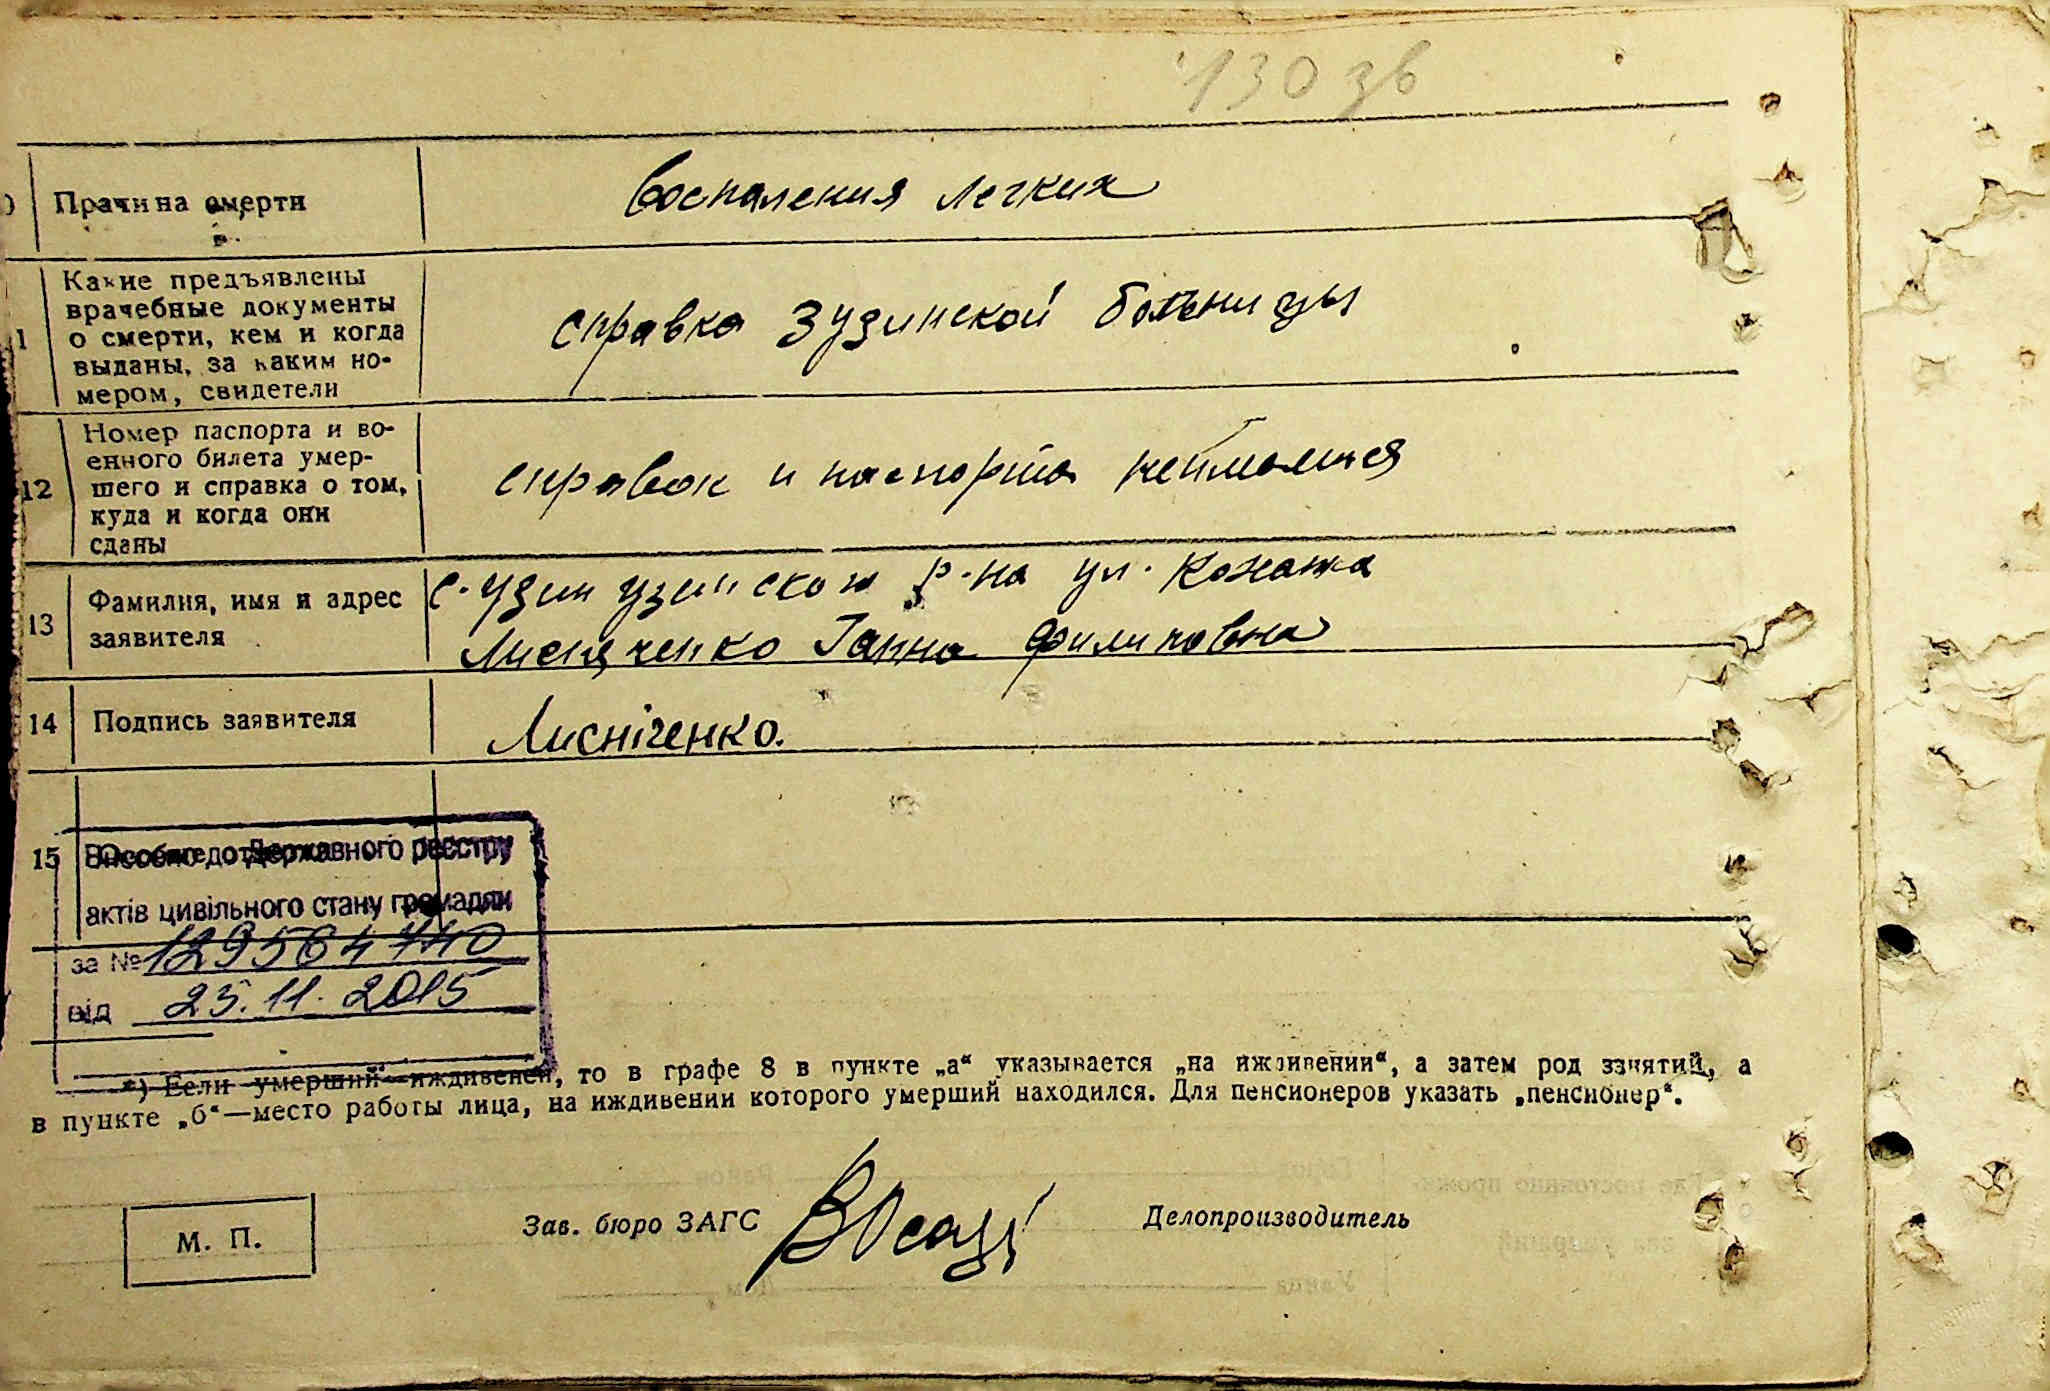 130 зв
Причина смерти
Воспаления легких
1
Какие предъявлены
врачебные документы
о смерти, кем и когда
выданы, за каким но-
мером, свидетели
справка Зузинской больницы
12
Номер паспорта и во-
енного билета умер-
шего и справка о том,
куда и когда они
сданы
справок и паспорта неималися
13
Фамилия, имя и адрес
заявителя
с. Узин Узинского р-на ул.
Ганна Филиповна
14
Подпись заявителя
Лисніченко.
15
Внесено до Державного реєстру
актів цивільного стану громадян
за № 129564740
від 25.11.2015
*) Если умерший иждивенец, то в графе 8 в пункте „а“ указывается „на иждивении“, а затем род занятий, а
в пункте „б“—место работы лица, на иждивении которого умерший находился. Для пенсионеров указать „пенсионер“.
М. П.
Зав. бюро ЗАГС
Делопроизводитель